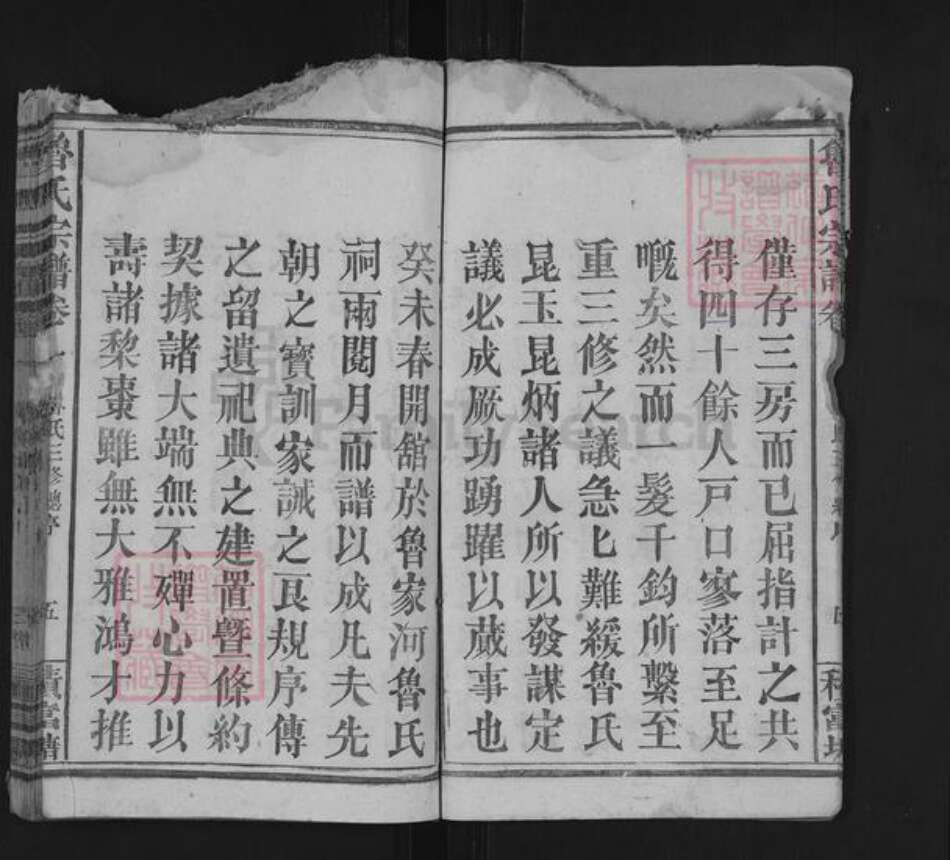 僅存三房而已屈指計之共
得四十餘人戸口寥落至足
嘅矣然而一髮千鈞所繫至
重三修之議急匕難緩魯氏
昆玉昆炳諸人所以發謀定
議必成厥功踴躍以蕆事也
癸未春開舘於魯家河魯氏
祠兩閱月而譜以成凡夫先
朝之寶訓家誡之良規序傳
之留遺祀典之建置曁條約
契據諸大端無不殫心力以
壽諸棃棗雖無大雅鴻才推
魯氏宗譜卷一
魯氏三修總序
五